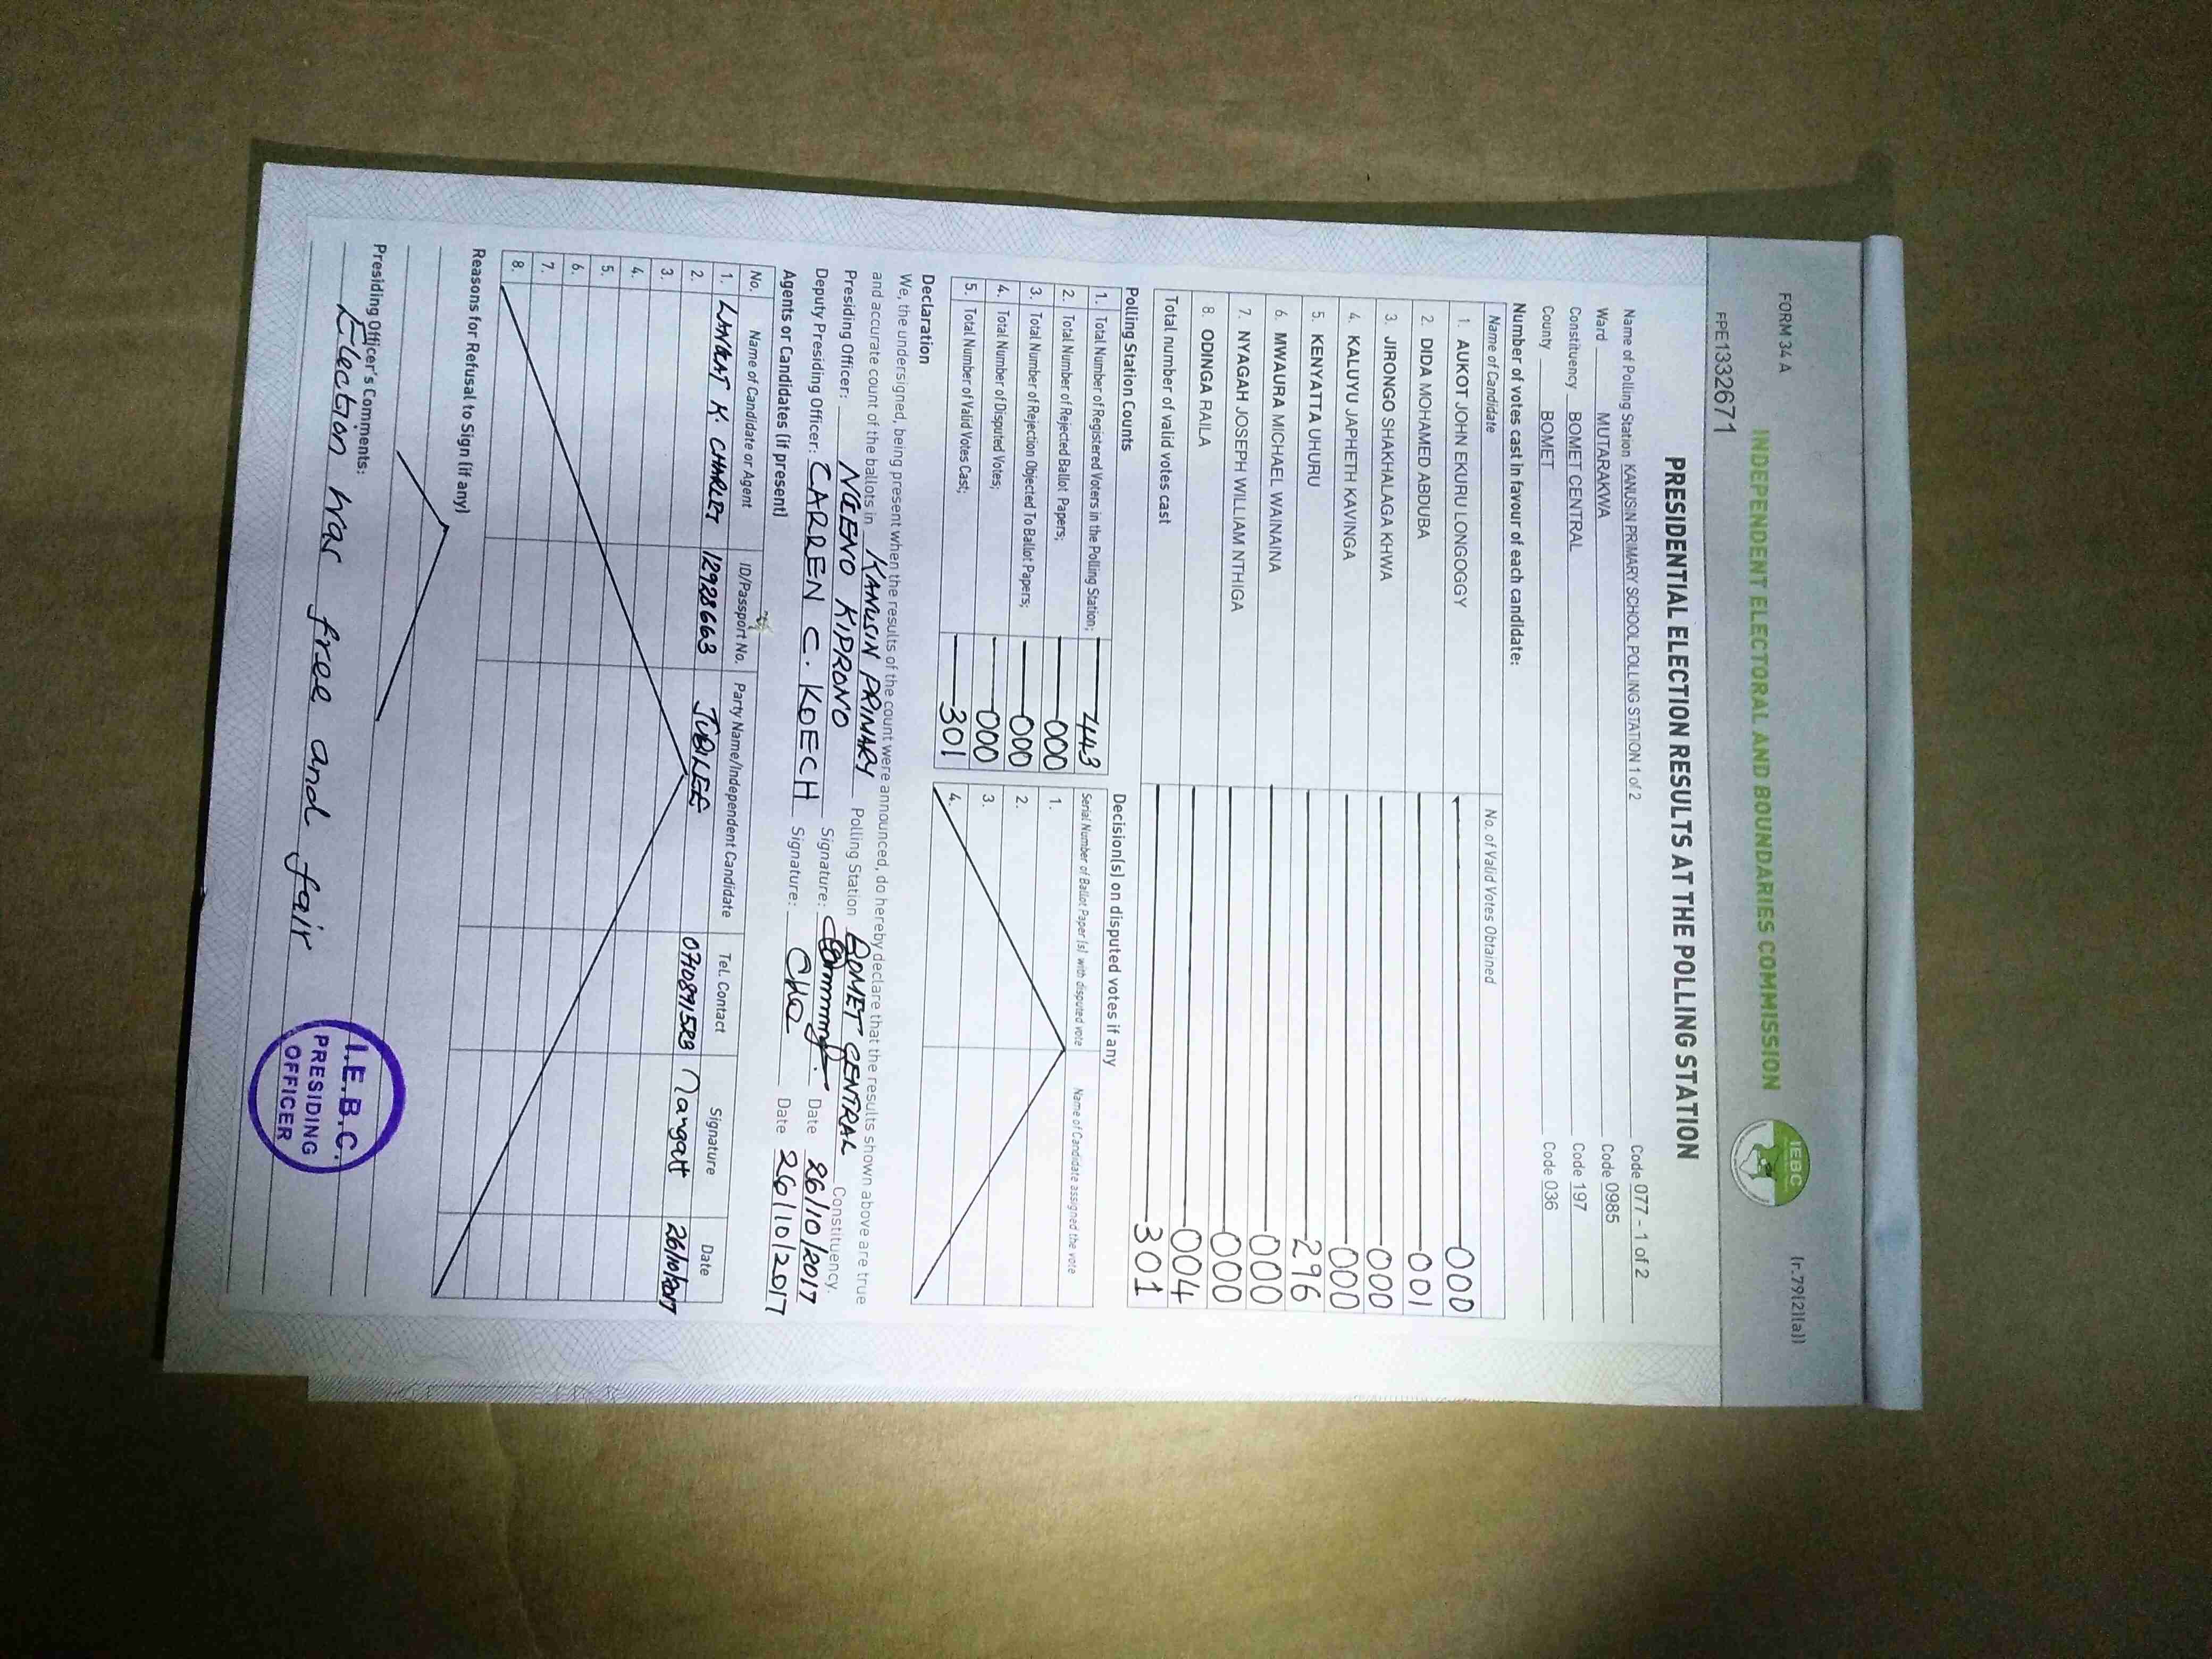 FORM 34 A
(r.79(2)(a))
INDEPENDENT ELECTORAL AND BOUNDARIES COMMISSION
IEBC
FPE1332671
PRESIDENTIAL ELECTION RESULTS AT THE POLLING STATION
Name of Polling Station KANUSIN PRIMARY SCHOOL POLLING STATION 1 of 2 Code 077 - 1 of 2
Ward MUTARAKWA Code 0985
Constituency BOMET CENTRAL Code 197
County BOMET Code 036
Number of votes cast in favour of each candidate:
Name of Candidate No. of Valid Votes Obtained
1. AUKOT JOHN EKURU LONGOGGY 000
2. DIDA MOHAMED ABDUBA 001
3. JIRONGO SHAKHALAGA KHWA 000
4. KALUYU JAPHETH KAVINGA 000
5. KENYATTA UHURU 296
6. MWAURA MICHAEL WAINAINA 000
7. NYAGAH JOSEPH WILLIAM NTHIGA 000
8. ODINGA RAILA 004
Total number of valid votes cast 301
Polling Station Counts
1. Total Number of Registered Voters in the Polling Station; 443
2. Total Number of Rejected Ballot Papers; 000
3. Total Number of Rejection Objected To Ballot Papers; 000
4. Total Number of Disputed Votes; 000
5. Total Number of Valid Votes Cast; 301
Decision(s) on disputed votes if any
Serial Number of Ballot Paper (s) with disputed vote Name of Candidate assigned the vote
1.
2.
3.
4.
Declaration
We, the undersigned, being present when the results of the count were announced, do hereby declare that the results shown above are true
and accurate count of the ballots in KANUSIN PRIMARY Polling Station BOMET CENTRAL Constituency.
Presiding Officer: NGENO KIPRONO Signature: Date 26/10/2017
Deputy Presiding Officer: CARREN C. KOECH Signature: Date 26/10/2017
Agents or Candidates (if present)
No. Name of Candidate or Agent ID/Passport No. Party Name/Independent Candidate Tel. Contact Signature Date
1. LANGAT K. CHARLES 12928663 JUBILEE 0710891523 26/10/2017
2.
3.
4.
5.
6.
7.
8.
Reasons for Refusal to Sign (if any)
Presiding Officer's Comments:
Election was free and fair
I.E.B.C.
PRESIDING
OFFICER